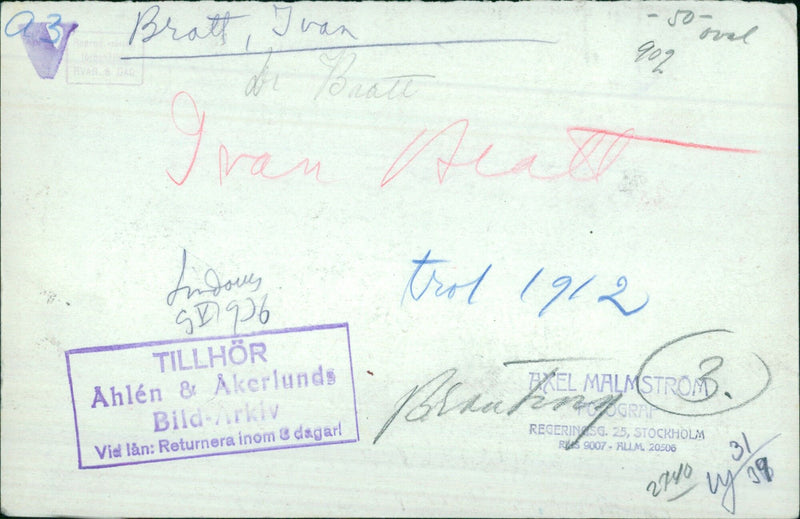 a 3
Bratt, Ivan
- 50 -
oval
902
Dr Bratt
Ivan Bratt
trol 1912
TILLHÖR
Åhlén & Åkerlunds
Bild-Arkiv
Vid lån: Returnera inom 8 dagar!
Branting
3.
AXEL MALMSTRÖM
FOTOGRAF
REGERINGSG. 25, STOCKHOLM
RIKS 9007 - ALLM. 20506
2740
31/39